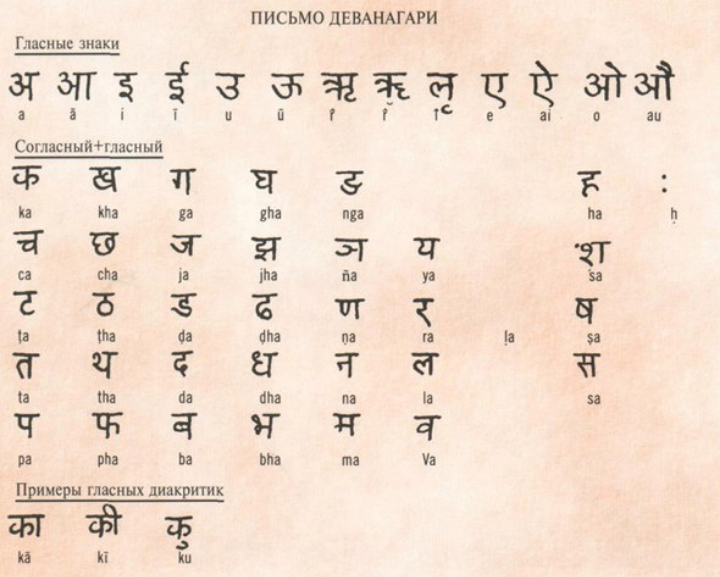 ПИСЬМО ДЕВАНАГАРИ
Гласные знаки
अ आ इ ई उ ऊ ऋ ॠ ऌ ए ऐ ओ औ
a ā i ī u ū e ai o au
Согласный+гласный
क ख ग घ ङ ह :
ka kha ga gha nga ha ḥ
च छ ज झ ञ य श
ca cha ja jha ña ya śa
ट ठ ड ढ ण र ष
ṭa ṭha ḍa ḍha ṇa ra ḷa ṣa
त थ द ध न ल स
ta tha da dha na la sa
प फ ब भ म व
pa pha ba bha ma Va
Примеры гласных диакритик
का की कु
kā kī ku